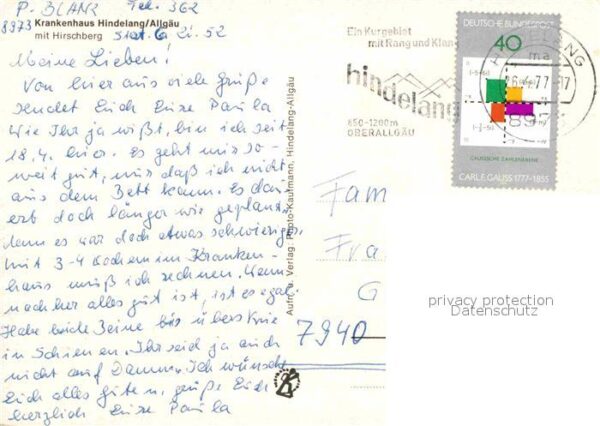 P. BLANZ Tel. 362
8973 Krankenhaus Hindelang/Allgäu
mit Hirschberg Stat. 6 Zi. 52
Meine Lieben!
Von hier aus viele Grüße
sendet Euch Eure Paula
Wie Ihr ja wißt, bin ich seit
18.4. hier. Es geht mir so-
weit gut, nur daß ich nicht
aus dem Bett kann. Es dau-
ert doch länger wie geplant,
denn es war doch etwas schwieriger.
Mit 3-4 Wochen im Kranken-
haus muß ich rechnen. Wenn
nachher alles gut ist, ist es egal.
Habe beide Beine bis übers Knie
in Schienen. Ihr seid ja auch
nicht auf Damm. Ich wünsche
Euch alles gute u. grüße Euch
herzlich Eure Paula
Aufn. u. Verlag: Photo-Kaufmann, Hindelang-Allgäu
Ein Kurgebiet
mit Rang und Klan
hindelang
850-1200m
OBERALLGÄU
26.4.77-17
8973
DEUTSCHE BUNDESPOST
40
GAUSSSCHE ZAHLENEBENE
CARL F. GAUSS 1777-1855
Fam
Fra
G
7940
privacy protection
Datenschutz